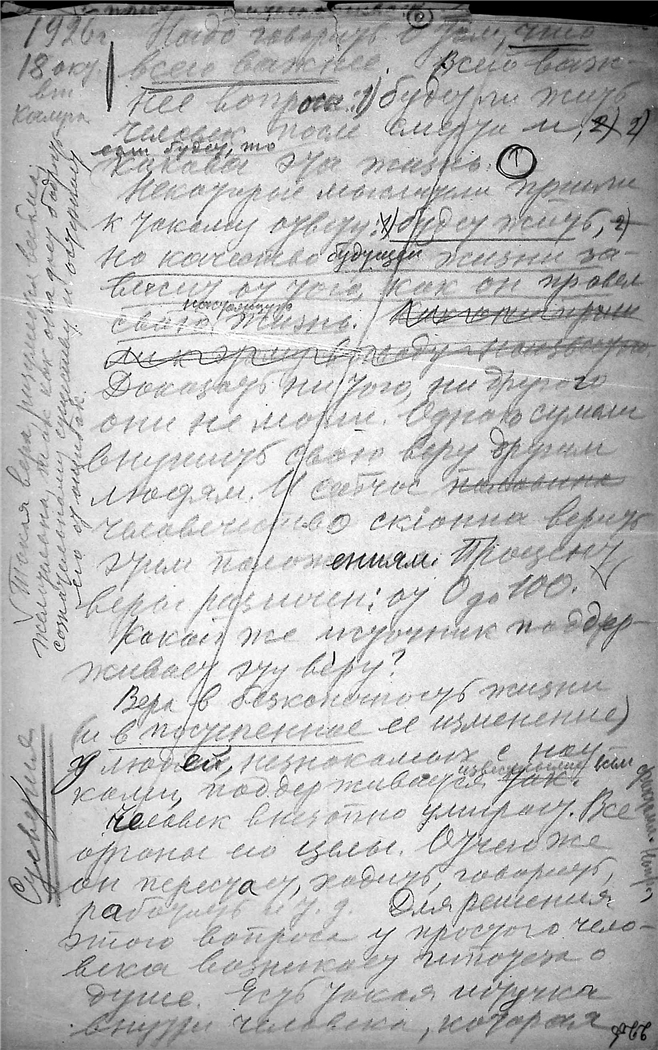 1926 г.
18 окт
вт
Калуга
Надо говорить о том, что
всего важнее. Всего важ-
нее вопросы: 1) будет ли жить
человек после смерти и, 2) 2)
если будет, то
какова эта жизнь. 1
Некоторые мыслители пришли
к такому ответу: 1) будет жить, 2)
но качество будущей жизни за-
висит от того, как он провел
настоящую
свою жизнь.
Доказать ни того, ни другого
они не могли. Однако сумели
внушить свою веру другим
людям. И сейчас половина
человечество склонна верить
этим положениям. Процент
веры различен: от 0 до 100.
Какой же источник поддер-
живает эту веру?
Вера в бесконечность жизни
(и в постепенное ее изменение)
у людей, незнакомых с нау-
ками, поддерживается так.
известными всем
фактами. Напр.,
Человек внезапно умирает. Все
органы его целы. Отчего же
он перестает, ходить, говорить,
работать и т. д. Для решения
этого вопроса у простого чело-
века возникает гипотеза о
душе. Есть такая штучка
внутри человека, которая
Такая вера разумна весьма
желательна, так как она дает бодрость
сознательному существу и остерегает
его от ошибок.
Суеверия